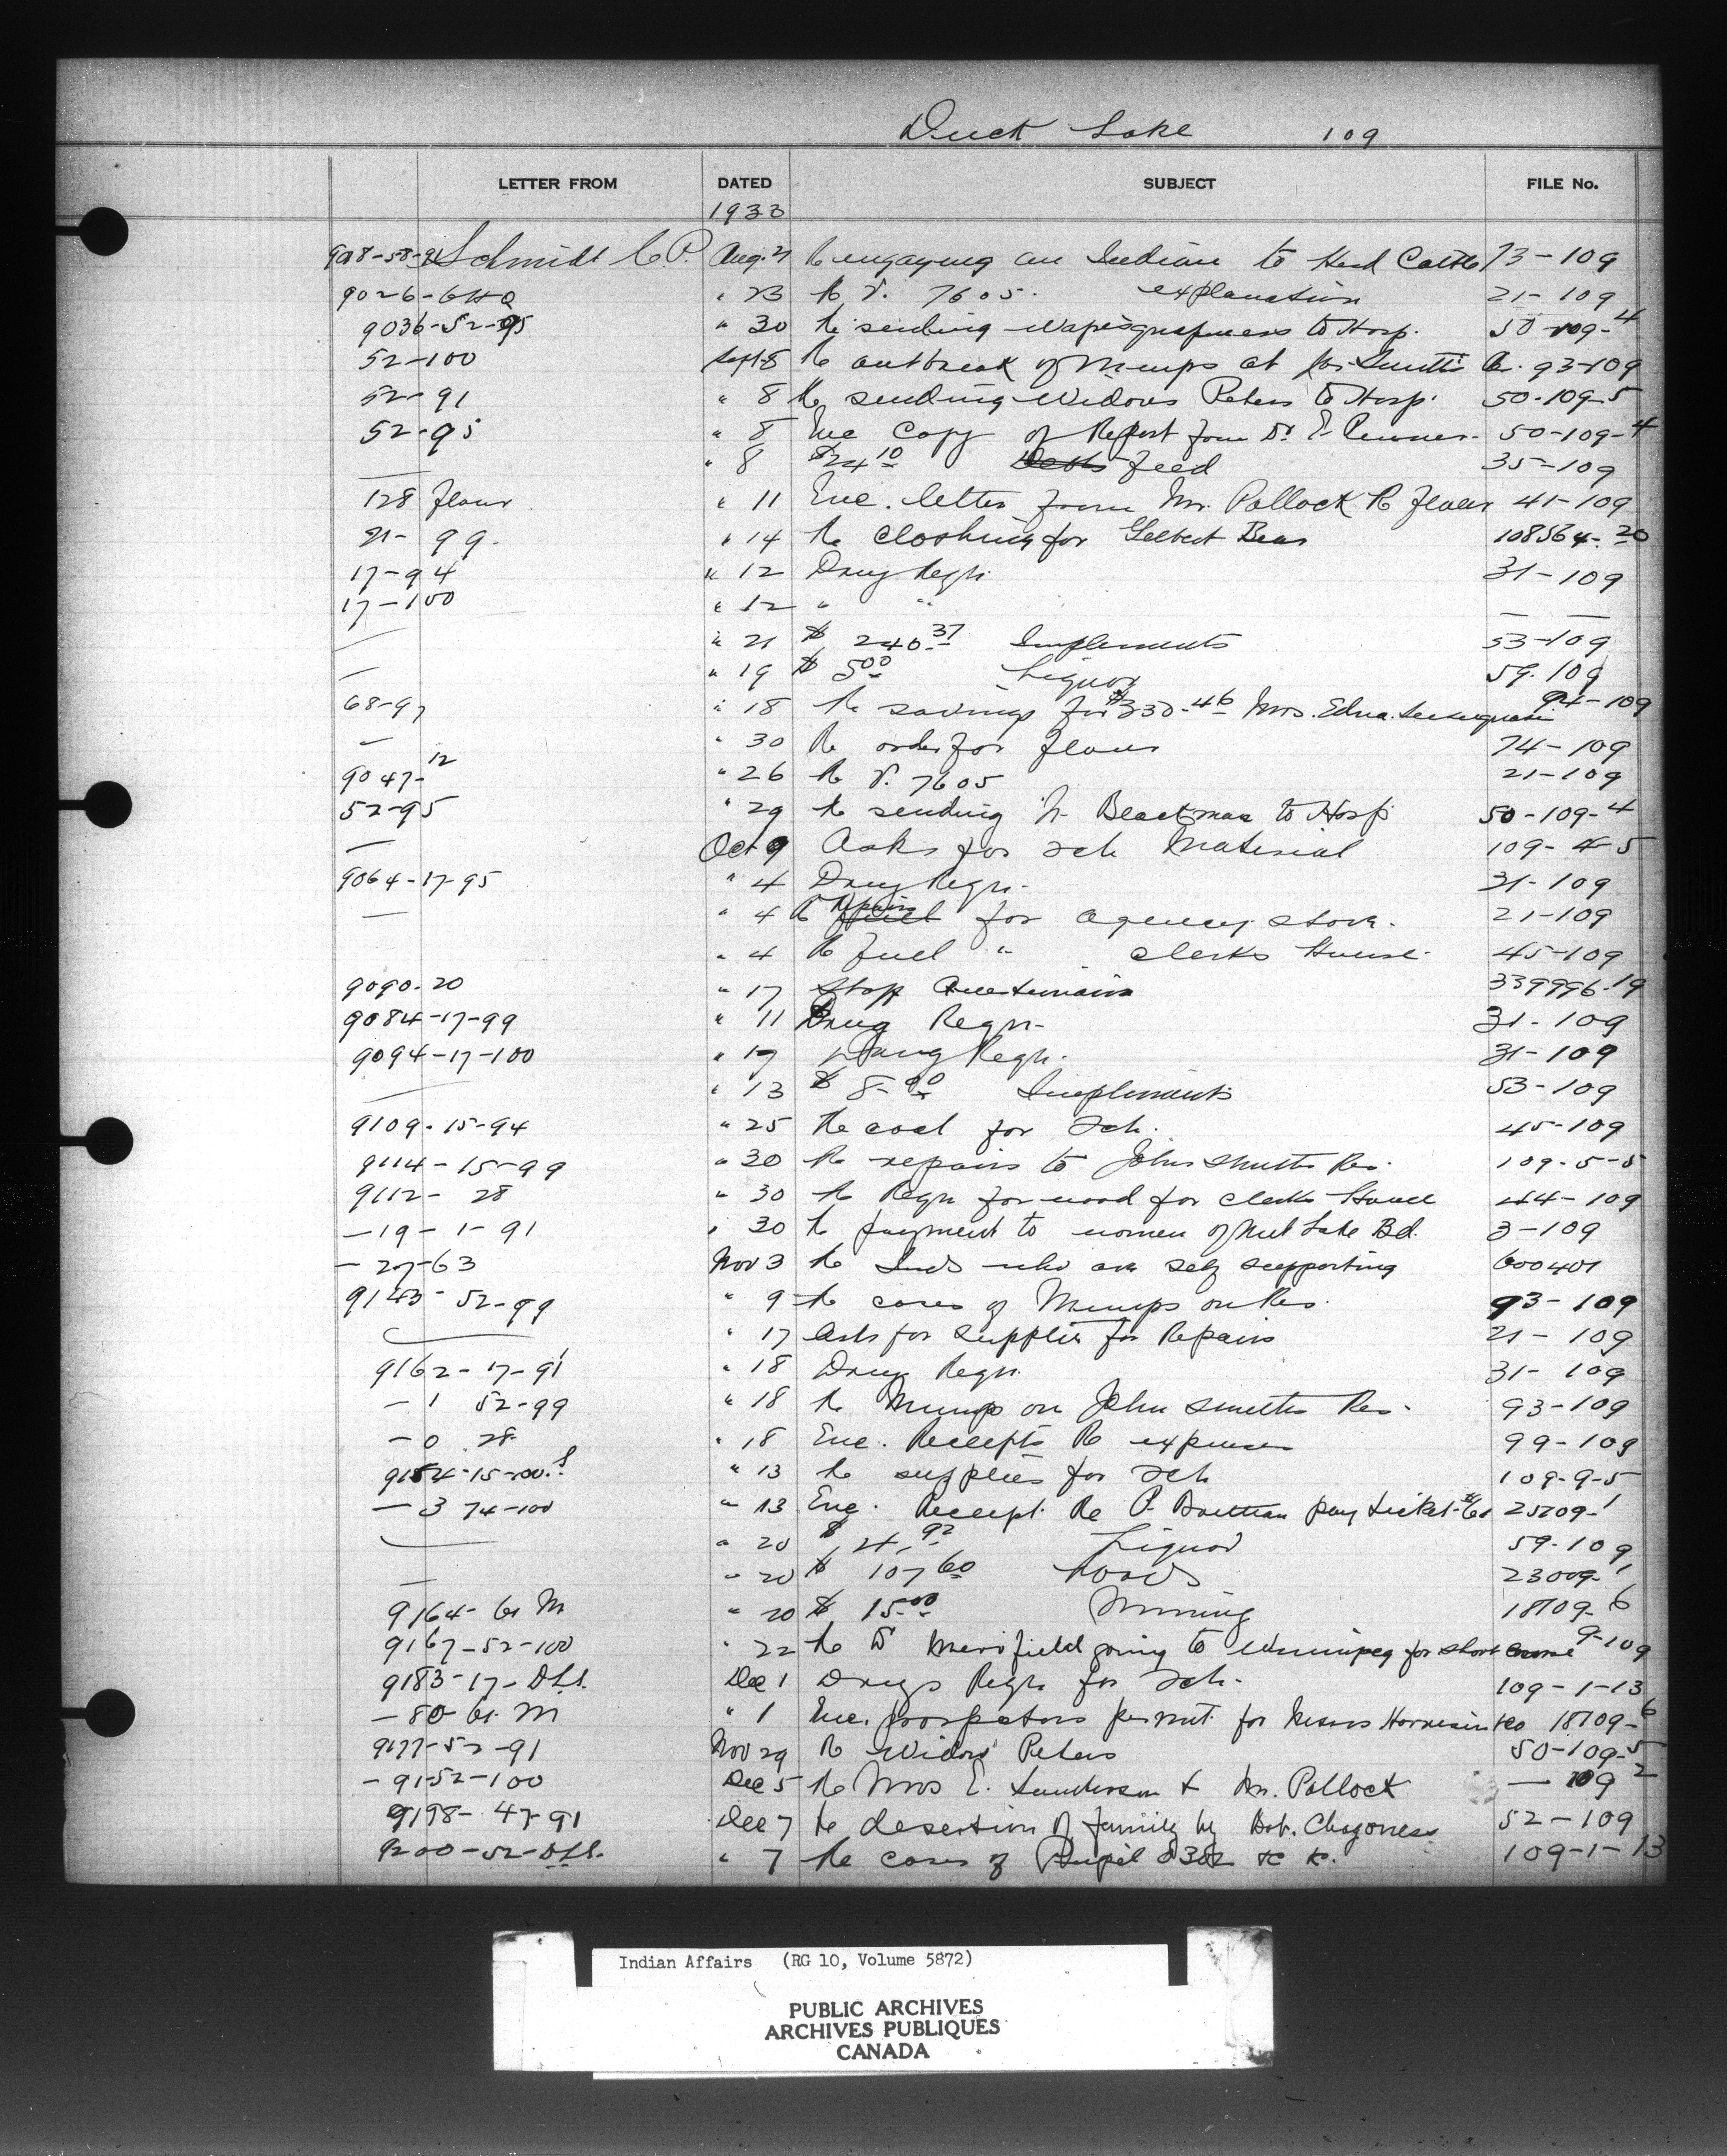 Duck Lake 109
LETTER FROM DATED SUBJECT FILE No.
1933
Schmidt C.P. Aug. Re engaging an Indian to Herd Cattle 73-109
9026- " 23 Re V. 7605. explanation 21-109
9036-52-95 " 30 Re sending to Hosp. 50-109-4
52-100 Sept 8 Re outbreak of Mumps at 93-109
52-91 " 8 Re sending Widow Peters to Hosp. 50-109-5
52-95 " 8 Enc Copy of Report from Dr. 50-109-4
— " 8 $24 10 feed 35-109
128 flour " 11 Enc. letter from Mr. Pollock Re flour 41-109
21-99. " 14 Re clothing for Gilbert Bear 108564-20
17-94 " 12 Drug Reqn. 31-109
17-100 " 12 " " — —
— " 21 $ 240.37 Implements 53-109
— " 19 $ 5.00 Liquor 59.109
68-97 " 18 Re savings for $330.46 Mrs. Edna 94-109
— " 30 Re order for flour 74-109
9047-12 " 26 Re V. 7605 21-109
52-95 " 29 Re sending to Hosp 50-109-4
— Oct 9 Asks for sch Material 109-4-5
9064-17-95 " 4 Drug Reqn. 31-109
— " 4 Re Repairs for agency stove. 21-109
" 4 Re fuel " clerks House. 45-109
9090-20 " 17 339996-19
9084-17-99 " 11 Drug Reqn- 31-109
9094-17-100 " 17 Drug Reqn. 31-109
— " 13 $ 8.00 Implements 53-109
9109-15-94 " 25 Re coal for Sch. 45-109
9114-15-99 " 30 Re repairs to John Smith Res. 109-5-5
9112- 28 " 30 Re Reqn for wood for clerks House 44-109
—19-1-91 " 30 Re payment to women of Nut Lake Bd. 3-109
— 27-63 Nov 3 Re Inds who are self supporting 600401
9143-52-99 " 9 Re cases of Mumps on Res. 93-109
— " 17 Asks for supplies for Repairs 21-109
9162-17-91 " 18 Drug Reqn. 31-109
— 1 52-99 " 18 Re Mumps on John Smiths Res. 93-109
— 0 28 " 18 Enc. Receipts Re expenses 99-109
9154-15-100. " 13 Re supplies for Sch 109-9-5
— 3 74-100 " 13 Enc. Receipt Re P. pay ticket 25109-1
— " 20 $ 4.92 Liquor 59-109
— " 20 $ 107 60 Roads 23009-1
9164- " 20 $ 15.00 Mining 18109-6
9167-52-100 " 22 Re Dr Merrifield going to Winnipeg for short course 9-109
9183-17-D.L.S. Dec 1 Drugs Reqn for Sch. 109-1-13
— 80- " 1 Enc. prospectors permit for Messrs 18109-6
9177-52-91 Nov 29 Re Widow Peters 50-109-5
— 91-52-100 Dec 5 Re Mrs E. Sanderson & Mr. Pollock — 109 2
9198-47-91 Dec 7 Re desertion of family by 52-109
9200-52-D.L.S. " 7 Re cases of Pupil 109-1-13
Indian Affairs (RG 10, Volume 5872)
PUBLIC ARCHIVES
ARCHIVES PUBLIQUES
CANADA